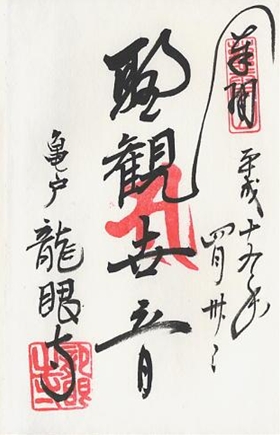 奉拝
平成十九年
四月卅日
聖観世音
亀戸
龍眼寺